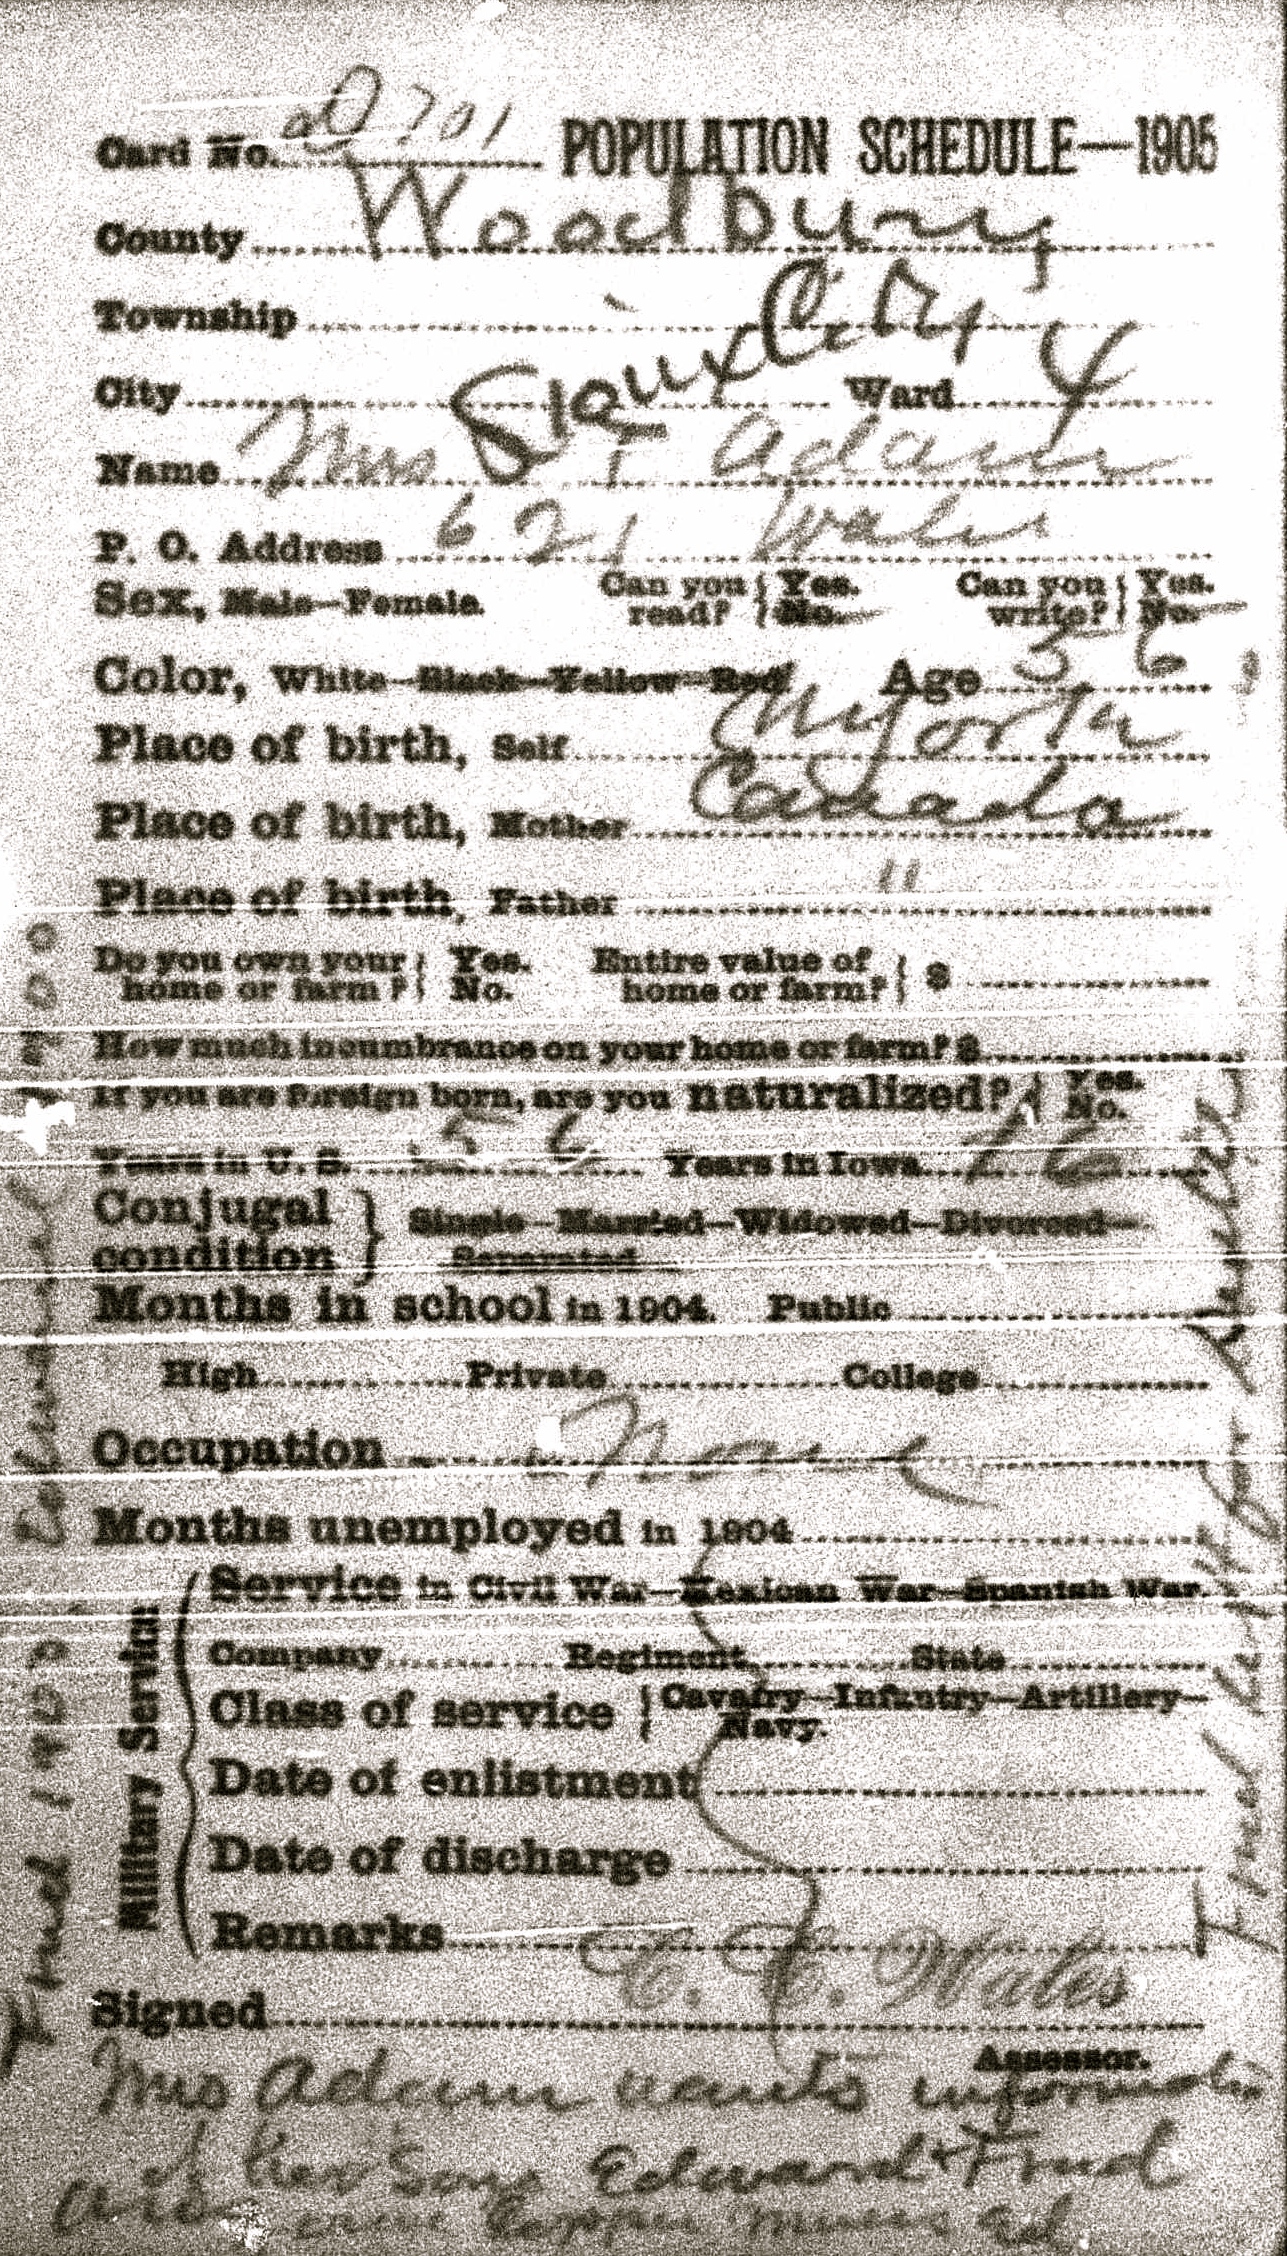 Card No. 20701 POPULATION SCHEDULE—1905
County Woodbury
Township
City Sioux City Ward 4
Name Mrs F Adam
P. O. Address 621 Wales
Sex, Male—Female. Can you read? { Yes. No. Can you write? { Yes. No.
Color, White—Black—Yellow—Red Age 56
Place of birth, Self
Place of birth, Mother Canada
Place of birth, Father "
Do you own your home or farm? } Yes. No. Entire value of home or farm? } $
How much incumbrance on your home or farm? $
If you are foreign born, are you naturalized? { Yes. No.
Years in U. S. 56 Years in Iowa 16
Conjugal condition } Single—Married—Widowed—Divorced—
Separated
Months in school in 1904. Public
High Private College
Occupation None
Months unemployed in 1904
Military Service
Service in Civil War—Mexican War—Spanish War.
Company Regiment State
Class of service { Cavalry—Infantry—Artillery—
Navy.
Date of enlistment
Date of discharge
Remarks
Signed C. C. Wales
Assessor.
Mrs Adam wants
of her Sons Edward + Fred